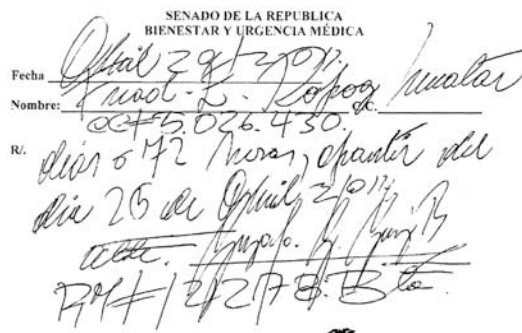 SENADO DE LA REPUBLICA
BIENESTAR Y URGENCIA MÉDICA
Fecha Abril 29/2011.
Nombre: Fuad E. C.C.
CC# 5.026.430.
R/. días o 72 horas, apartir del
día 26 de Abril 2011
att.
RM# 12278. Bta.